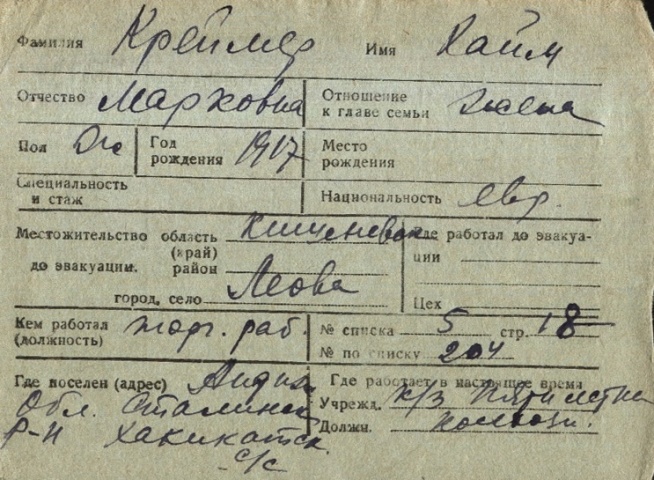 Фамилия Креймер Имя Хайм
Отчество Марковна Отношение к главе семьи жена
Пол Ж Год рождения 1917 Место рождения
Специальность и стаж Национальность евр.
Местожительство до эвакуации. область (край) Кишеневск Где работал до эвакуации
район
город, село Леова Цех
Кем работал (должность) торг. раб. № списка 5 стр. 18
№ по списку 204
Где поселен (адрес) Андиж. Где работает в настоящее время
Обл. Сталинск Учрежд. к/з Пятилетка
р-н Хакикатск Должн. колхозн.
с/с